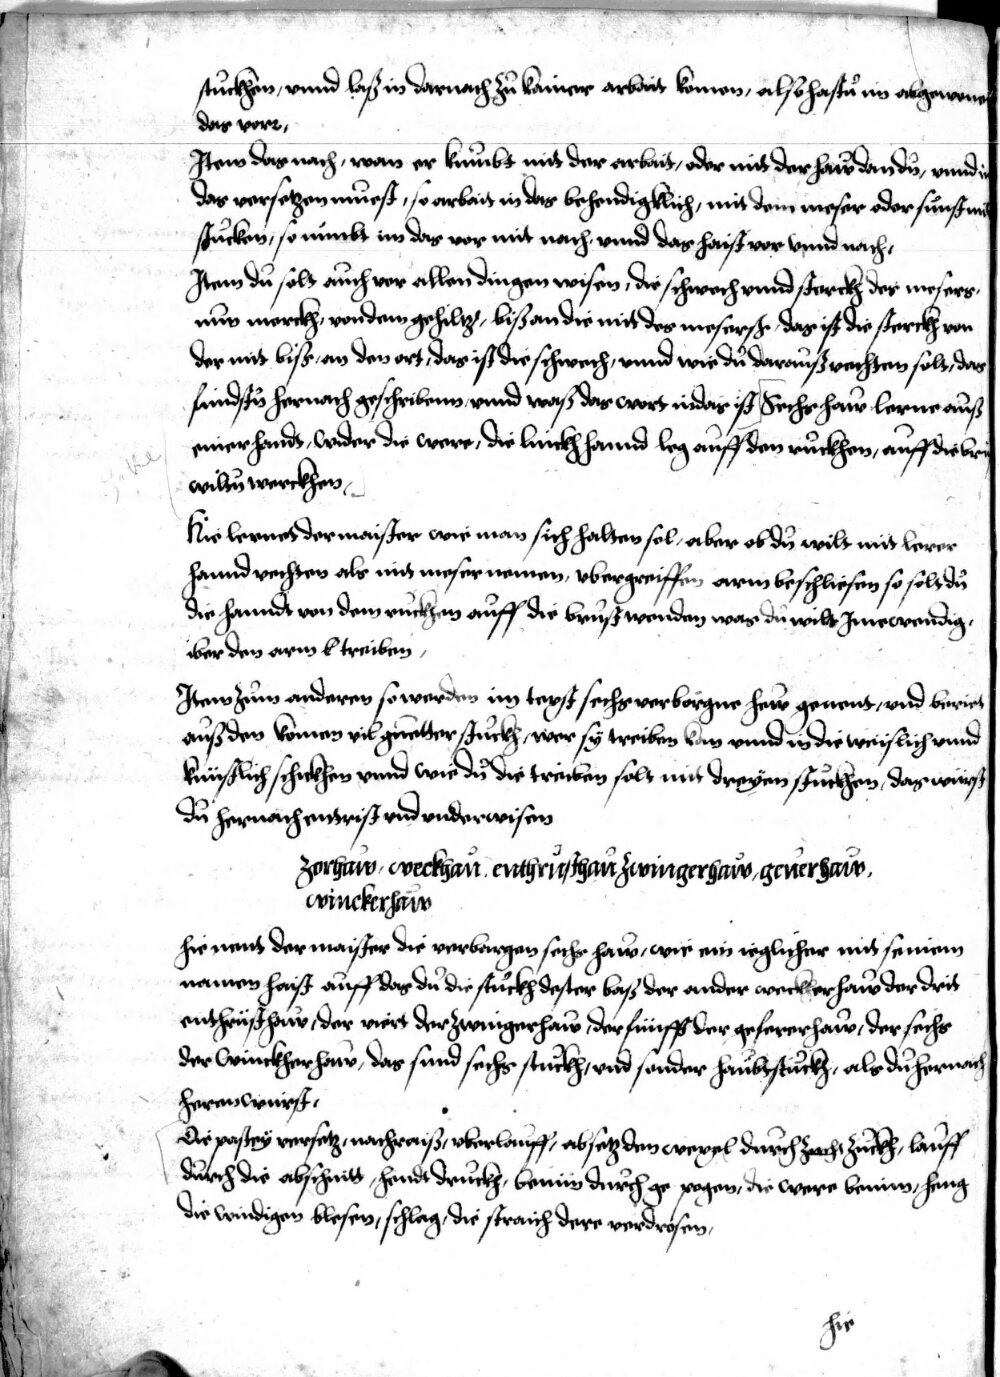 stuckhen, vnnd laß in darnach zů kainer arbait komen, also hastu im abgewonen
das vorr,
Item das nach, wan er kumbt mit der arbait, oder mit der haw dan dů, vnnd in
das versetzen muest, so arbait in das behendigklich, mit dem meser oder sunst mit
stucken, so nimbt im das vor mit nach, vnnd das haist vor vnnd nach,
Item dů solt auch vor allen dingen wisen, die schwech vnnd sterckh des mesers,
nun merckh, von dem gehiltz, biß an die mit des mesers, das ist die sterckh von
der mit biß, an den ort, das ist die schwech, vnnd wie dů darauß vechten solt, das
findstu hernach geschribenn, vnnd waß das wort indas ist Sechs haw lerne auß
einer handt, wider die were, die linckh hannd leg auff den ruckhen, auff die bru
wiltu werckhen,
Hie lernet der maister wie man sich halten sol, aber ob dů wilt mit lerer
hannd vechten als mit meser nemen, vbergreiffen arm beschliesen so solt dů
die hanndt von dem ruckhen auff die brust wenden was du wilt Inewendig,
iber den arm treiben,
Item zům anderen so werden im text sechs verborgne hew genent, vnd beriet
auß den komen vil guetter stuckh, wer sy treiben kan vnnd in die weislich vnnd
kunstlich schickhen vnnd wie dů die treiben solt mit dreyen stuckhen, das würst
dů hernach entrist vnd vnderwisen
Zorhaw, weckhau, enthrusthau Zwingerhaw, geuerhaw,
winckerhaw
hie nent der maister die verborgen sechs haw, wie ein ieglicher mit seinem
namen haist auff das dů die stuckh dester baß der ander weckerhaw der drit
enthrüsthaw, der viert der zwingerhaw, der fünfft der gefererhaw, der sechs
der Winckherhaw, das sind sechs stuckh, vnd sonder haubtstuckh, als dů hernach
heren wurst,
Die pastey versetz, nachraiß, vberlauff, absetz den wexel durch zuckh, lauff
durch die abschnitt, hendt druckh, benim durch ge pogen, die were benim, heng
die windigen blesen, schlag, die straich dere verdrosen,
hie